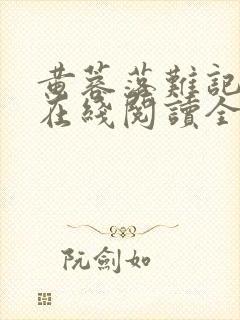 黄蓉落難記
在綫閱讀全
阮劍如